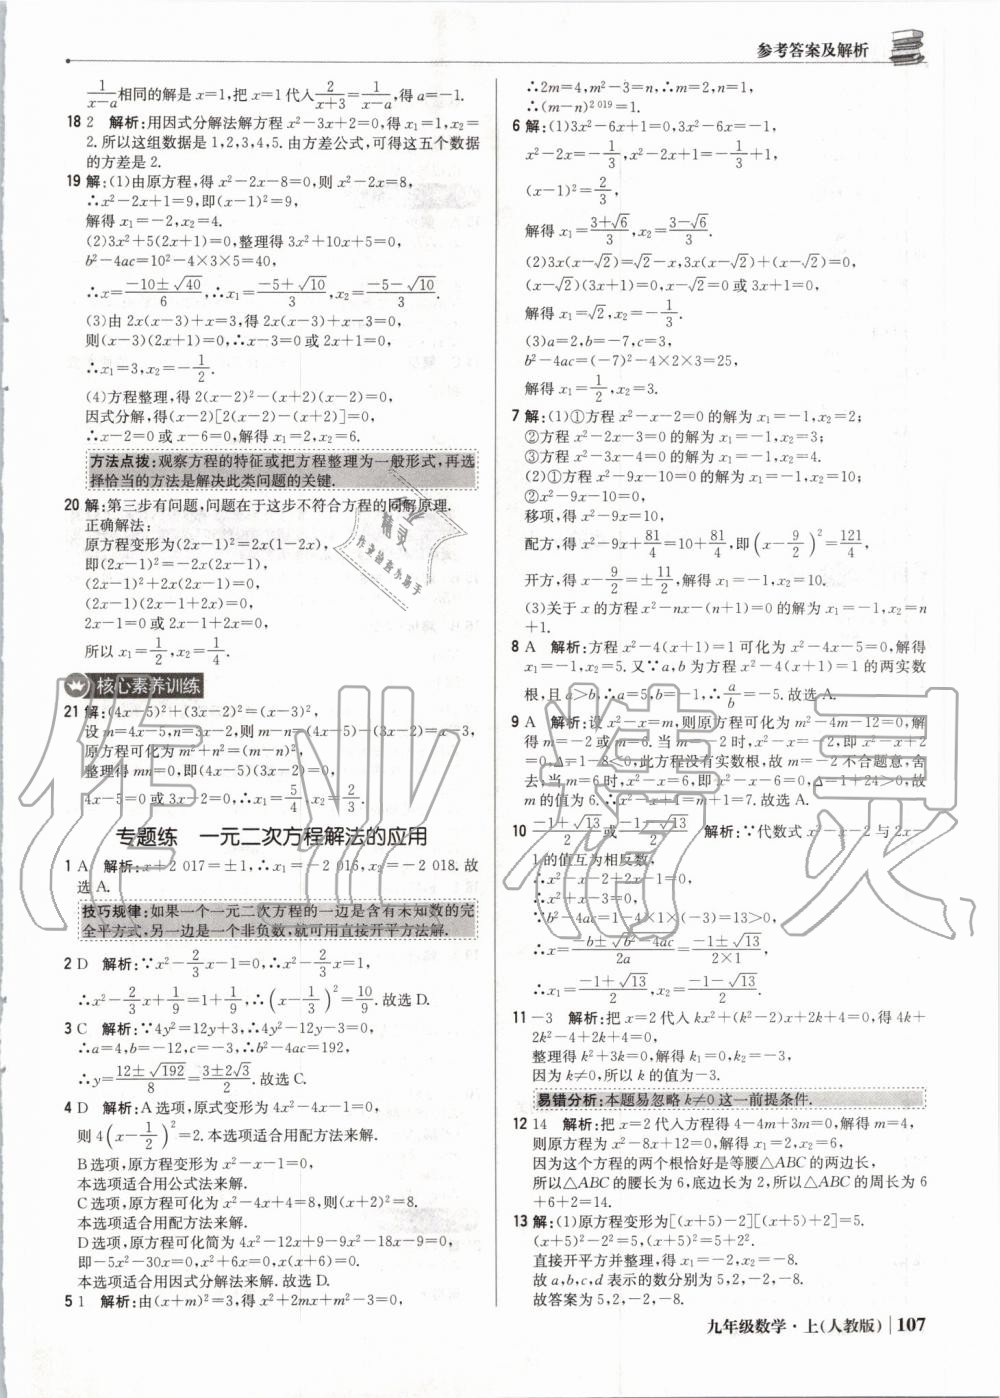 参考答案及解析
1/(x-a)相同的解是x=1,把x=1代入2/(x+3)=1/(x-a),得a=-1.
18 2 解析:用因式分解法解方程x²-3x+2=0,得x₁=1,x₂=
2.所以这组数据是1,2,3,4,5.由方差公式,可得这五个数据
的方差是2.
19 解:(1)由原方程,得x²-2x-8=0,则x²-2x=8,
∴x²-2x+1=9,即(x-1)²=9,
解得x₁=-2,x₂=4.
(2)3x²+5(2x+1)=0,整理得3x²+10x+5=0,
b²-4ac=10²-4×3×5=40,
∴x=(-10±√40)/6,∴x₁=(-5+√10)/3,x₂=(-5-√10)/3.
(3)由2x(x-3)+x=3,得2x(x-3)+x-3=0,
则(x-3)(2x+1)=0,∴x-3=0或2x+1=0,
∴x₁=3,x₂=-1/2.
(4)方程整理,得2(x-2)²-(x+2)(x-2)=0,
因式分解,得(x-2)[2(x-2)-(x+2)]=0,
∴x-2=0或x-6=0,解得x₁=2,x₂=6.
方法点拨:观察方程的特征或把方程整理为一般形式,再选
择恰当的方法是解决此类问题的关键.
20 解:第三步有问题,问题在于这步不符合方程的同解原理.
正确解法:
原方程变形为(2x-1)²=2x(1-2x),
即(2x-1)²=-2x(2x-1),
(2x-1)²+2x(2x-1)=0,
(2x-1)(2x-1+2x)=0,
2x-1=0或2x-1+2x=0,
所以x₁=1/2,x₂=1/4.
核心素养训练
21 解:(4x-5)²+(3x-2)²=(x-3)²,
设m=4x-5,n=3x-2,则m-n=(4x-5)-(3x-2)=x-3,
原方程可化为m²+n²=(m-n)²,
整理得mn=0,即(4x-5)(3x-2)=0,
4x-5=0或3x-2=0,∴x₁=5/4,x₂=2/3.
专题练 一元二次方程解法的应用
1 A 解析:x+2 017=±1,∴x₁=-2 016,x₂=-2 018.故
选A.
技巧规律:如果一个一元二次方程的一边是含有未知数的完
全平方式,另一边是一个非负数,就可用直接开平方法解.
2 D 解析:∵x²-2/3x-1=0,∴x²-2/3x=1,
∴x²-2/3x+1/9=1+1/9,∴(x-1/3)²=10/9.故选D.
3 C 解析:∵4y²=12y+3,∴4y²-12y-3=0,
∴a=4,b=-12,c=-3,∴b²-4ac=192,
∴y=(12±√192)/8=(3±2√3)/2.故选C.
4 D 解析:A选项,原式变形为4x²-4x-1=0,
则4(x-1/2)²=2.本选项适合用配方法来解.
B选项,原方程变形为x²-x-1=0,
本选项适合用公式法来解.
C选项,原方程可化为x²-4x+4=8,则(x+2)²=8,
本选项适合用配方法来解.
D选项,原方程可化简为4x²-12x+9-9x²-18x-9=0,
即-5x²-30x=0,x²+6x=0,x(x+6)=0.
本选项适合用因式分解法来解.故选D.
5 1 解析:由(x+m)²=3,得x²+2mx+m²-3=0,
∴2m=4,m²-3=n,∴m=2,n=1,
∴(m-n)²⁰¹⁹=1.
6 解:(1)3x²-6x+1=0,3x²-6x=-1,
x²-2x=-1/3,x²-2x+1=-1/3+1,
(x-1)²=2/3,
解得x₁=(3+√6)/3,x₂=(3-√6)/3.
(2)3x(x-√2)=√2-x,3x(x-√2)+(x-√2)=0,
(x-√2)(3x+1)=0,x-√2=0或3x+1=0,
解得x₁=√2,x₂=-1/3.
(3)a=2,b=-7,c=3,
b²-4ac=(-7)²-4×2×3=25,
解得x₁=1/2,x₂=3.
7 解:(1)①方程x²-x-2=0的解为x₁=-1,x₂=2;
②方程x²-2x-3=0的解为x₁=-1,x₂=3;
③方程x²-3x-4=0的解为x₁=-1,x₂=4.
(2)①方程x²-9x-10=0的解为x₁=-1,x₂=10;
②x²-9x-10=0,
移项,得x²-9x=10,
配方,得x²-9x+81/4=10+81/4,即(x-9/2)²=121/4,
开方,得x-9/2=±11/2,解得x₁=-1,x₂=10.
(3)关于x的方程x²-nx-(n+1)=0的解为x₁=-1,x₂=n
+1.
8 A 解析:方程x²-4(x+1)=1可化为x²-4x-5=0,解得
x₁=-1,x₂=5.又∵a,b为方程x²-4(x+1)=1的两实数
根,且a>b,∴a=5,b=-1,∴a/b=-5.故选A.
9 A 解析:设x²-x=m,则原方程可化为m²-4m-12=0,解
得m=-2或m=6.当m=-2时,x²-x=-2,即x²-x+2
=0,Δ=1-8<0,此方程没有实数根,故m=-2不合题意,舍
去;当m=6时,x²-x=6,即x²-x-6=0,Δ=1+24>0,故
m的值为6.∴x²-x+1=m+1=7.故选A.
10 (-1+√13)/2或(-1-√13)/2 解析:∵代数式x²-x-2与2x-
1的值互为相反数,
∴x²-x-2+2x-1=0,
∴x²+x-3=0,
∵b²-4ac=1-4×1×(-3)=13>0,
∴x=(-b±√(b²-4ac))/2a=(-1±√13)/(2×1),
∴x₁=(-1+√13)/2,x₂=(-1-√13)/2.
11 -3 解析:把x=2代入kx²+(k²-2)x+2k+4=0,得4k+
2k²-4+2k+4=0,
整理得k²+3k=0,解得k₁=0,k₂=-3,
因为k≠0,所以k的值为-3.
易错分析:本题易忽略k≠0这一前提条件.
12 14 解析:把x=2代入方程得4-4m+3m=0,解得m=4,
则原方程为x²-8x+12=0,解得x₁=2,x₂=6,
因为这个方程的两个根恰好是等腰△ABC的两边长,
所以△ABC的腰长为6,底边长为2,所以△ABC的周长为6
+6+2=14.
13 解:(1)原方程变形为[(x+5)-2][(x+5)+2]=5.
(x+5)²-2²=5,(x+5)²=5+2².
直接开平方并整理,得x₁=-2,x₂=-8.
故a,b,c,d表示的数分别为5,2,-2,-8.
故答案为5,2,-2,-8.
九年级数学·上(人教版) 107
作业精灵